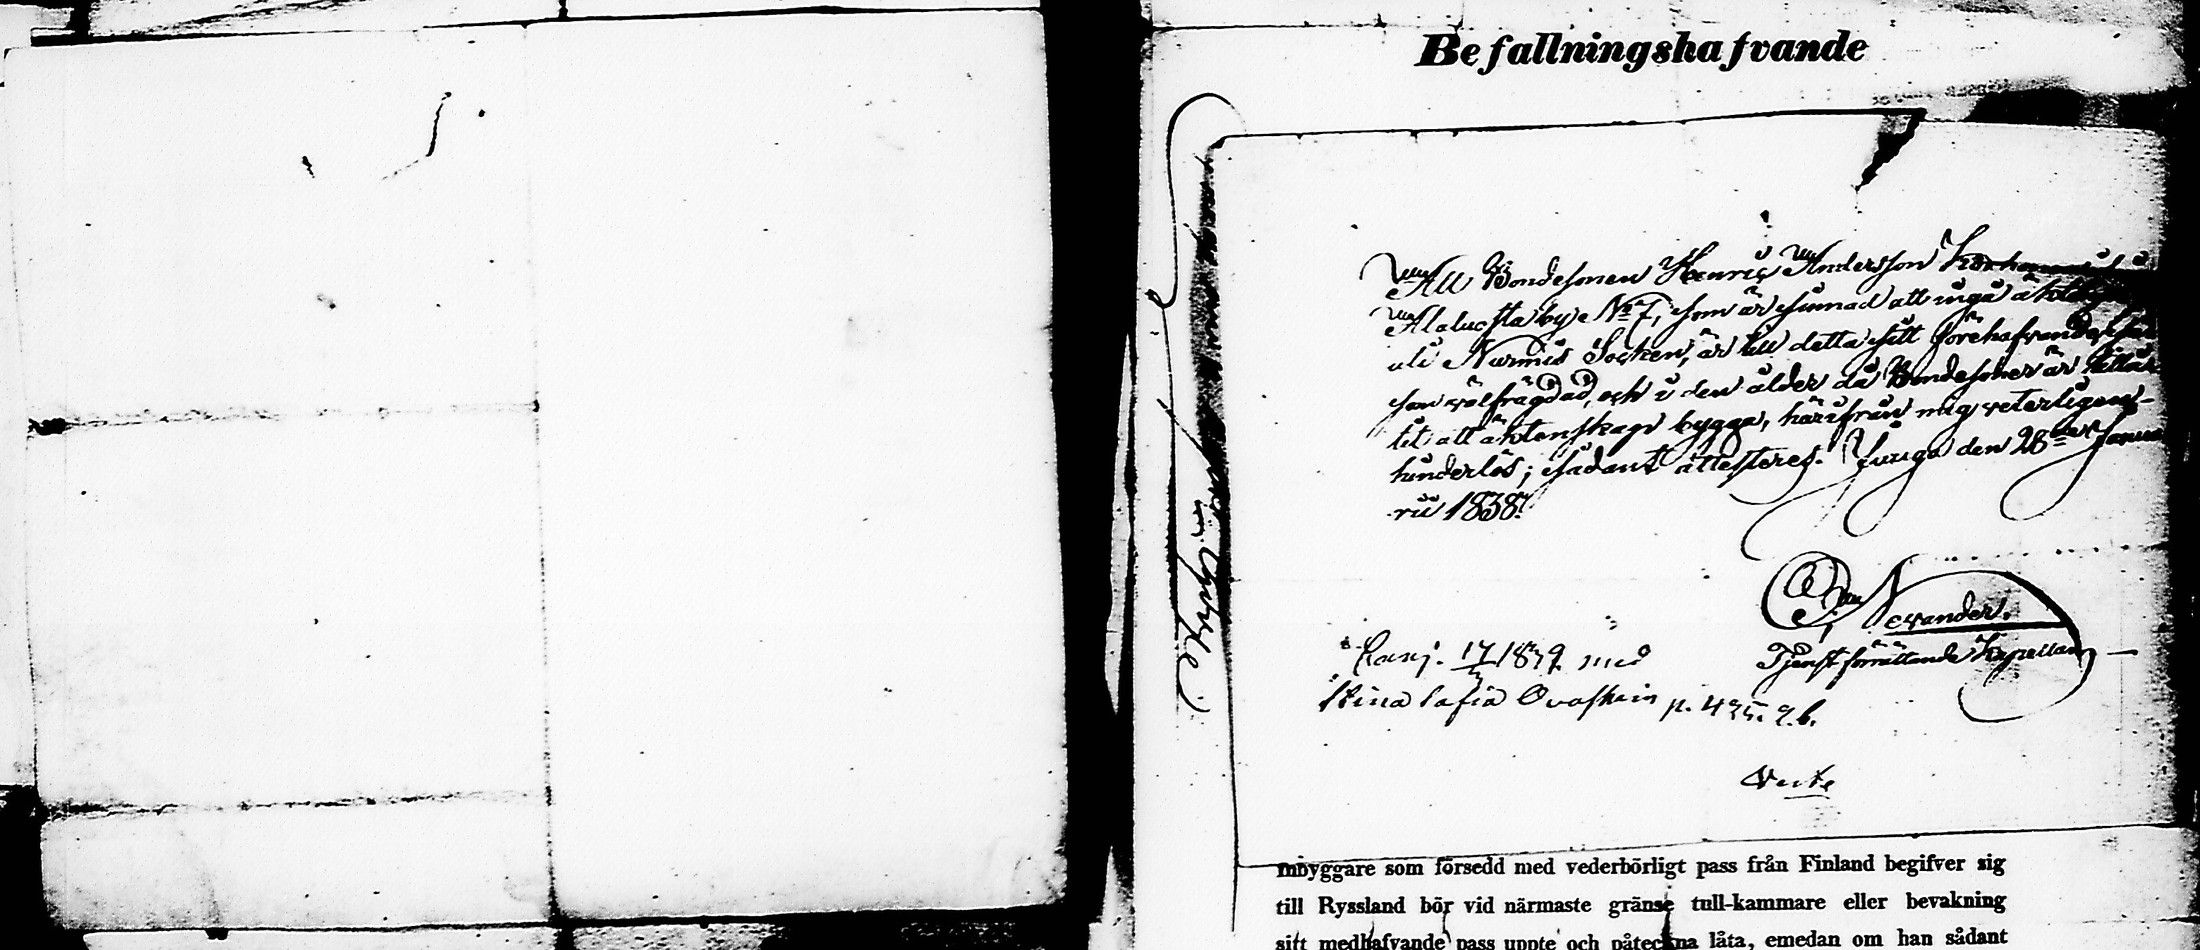 Befallningshafvande
Att Bondesonen Henric Andersson
Alaluosta by No 7, som är sinnad att ingå
uti Nurmis Socken, är till detta sitt förehafvande
son välfrägdad, och i den ålder då Bondesöner är tillåt
tit att äktenskap bygga, härifrån mig veterligen
hinderlös; sådant attesteres. Juuga den 28de Janua
rii 1838.
Nevander.
Tjenst förrättande Kapellan
Conj. 17 1839 med
Stina Sofia Ovaskain p. 435.
Verte
mbyggare som försedd med vederbörligt pass från Finland begifver sig
till Ryssland bör vid närmaste gränse tull-kammare eller bevakning
sitt medhafvande pass uppte och påteckna låta, emedan om han sådant